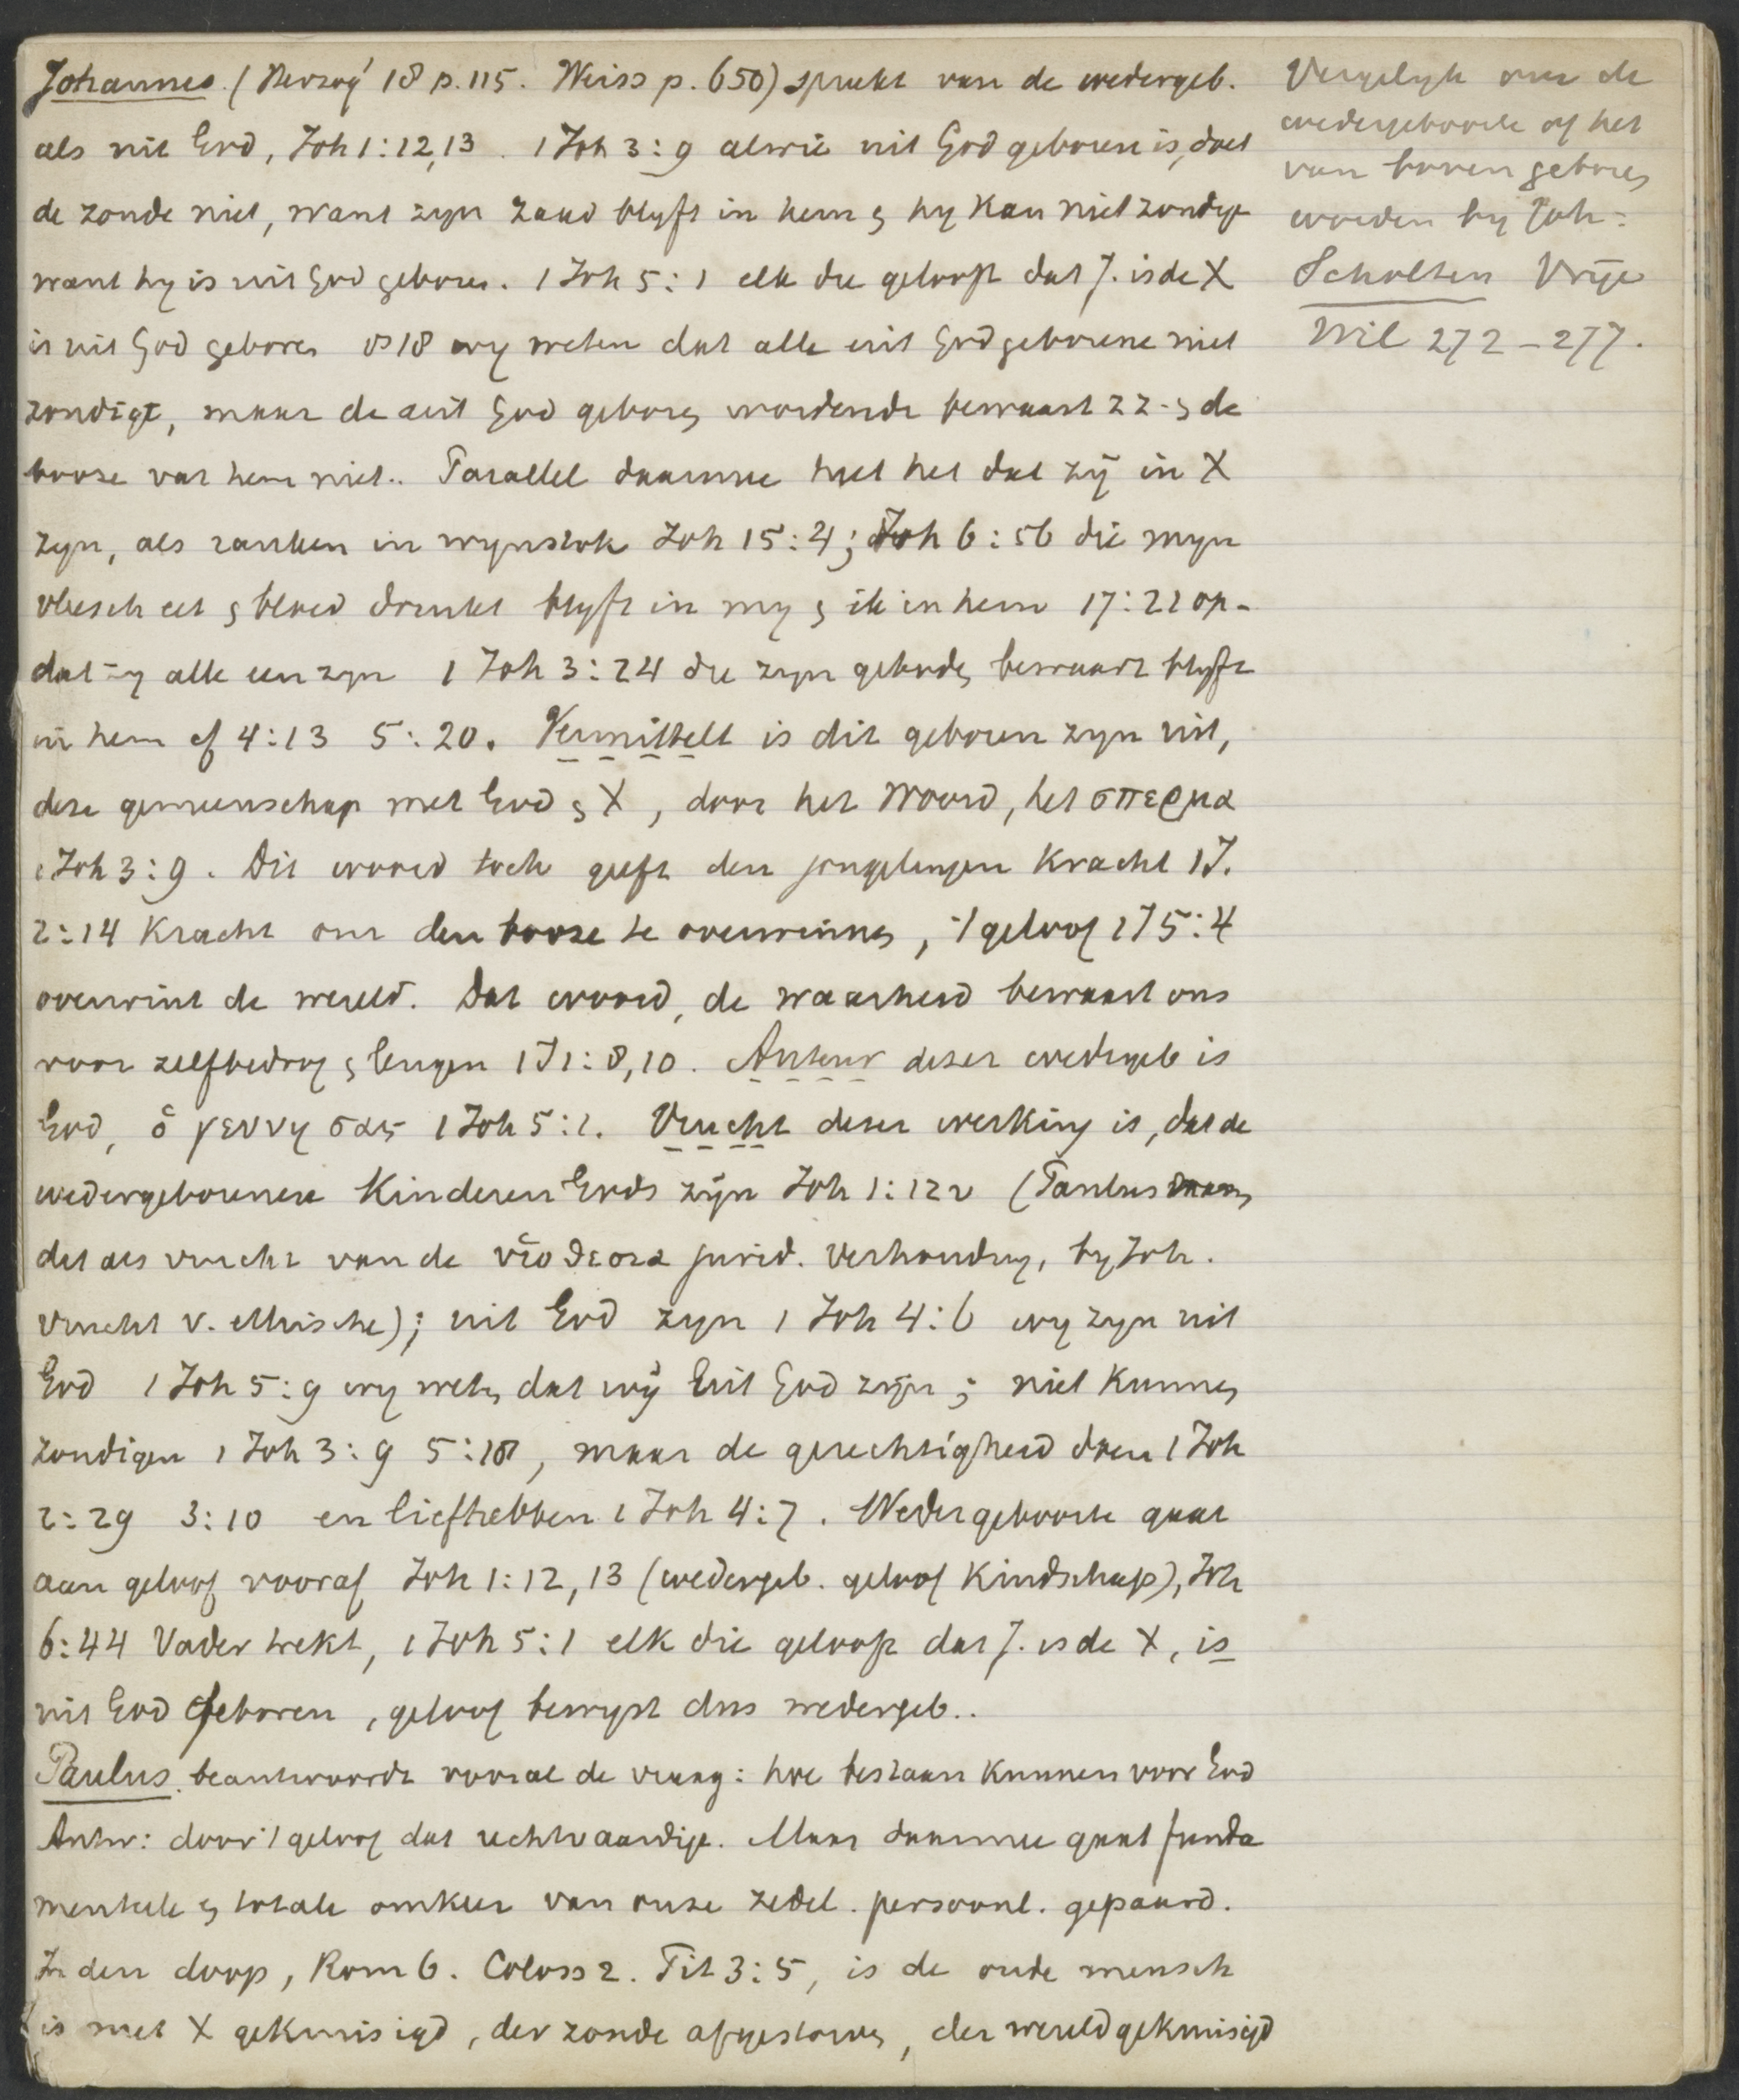 Johannes. (Herzog² 18 p. 115. Weiss p. 650) spreekt van de wedergeb.
als uit God, Joh 1:12,13. 1 Joh 3:9 alwie uit God geboren is, doet
de zonde niet, want zyn zaad blyft in hem & hy kan niet zondig
want hy is uit God geboren. 1 Joh 5:1 elk die gelooft dat J. is de X
is uit God geboren vs 18 wy weten dat alle uit God geborene niet
zondigt, maar de uit God geboren wordende bewaart zz. & de
booze vat hem niet.. Parallel daarmee het dat zij in X
zyn, als ranken in wynstok Joh 15:4; Joh 6:56 die myn
vleesch eet & bloed drinkt blyft in my & ik in hem 17:21 op-
dat zy alle een zyn 1 Joh 3:24 die zyn geboden bewaart blyft
in hem cf 4:13 5:20. Vermittelt is dit geboren zyn uit,
deze gemeenschap met God & X, door het Woord, het σπερμα
1 Joh 3:9. Dit woord toch geeft den jongelingen Kracht 1 J.
2:14 Kracht om den booze te overwinnen, 't geloof 1 J 5:4
overwint de wereld. Dat woord, de waarheid bewaart ons
voor zelfbedrog & leugen 1 J 1:8,10. Auteur dezer wedergeb is
God, ὁ γεννησας 1 Joh 5:1. Vrucht dezer werking is, dat de
wedergeborenen Kinderen Gods zijn Joh 1:12 v (Paulus
dit als vrucht van de υἱοθεσια jurid. verhouding, by Joh.
vrucht v. ethische); uit God zyn 1 Joh 4:6 wy zyn uit
God 1 Joh 5:9 wy weten dat wij uit God zijn; niet kunnen
zondigen 1 Joh 3:9 5:18, maar de gerechtigheid doen 1 Joh
2:29 3:10 en liefhebben 1 Joh 4:7. Wedergeboorte gaat
aan geloof vooraf Joh 1:12,13 (wedergeb. geloof Kindschap), Joh
6:44 Vader trekt, 1 Joh 5:1 elk die gelooft dat J. is de X, is
uit God Geboren, geloof bewyst dus wedergeb..
Paulus. beantwoordt vooral de vraag: hoe bestaan kunnen voor God
Antw: door 't geloof dat rechtvaardigt. Maar daarmee gaat funda
menteele & totale omkeer van onze zedel. persoonl. gepaard.
In den doop, Rom 6. Coloss 2. Tit 3:5, is de oude mensch
is met X gekruisigd, der zonde afgestorven, der wereld gekruisigd
Vergelyk over de
wedergeboorte of het
van boven geboren
worden by Joh:
Scholten Vrije
Wil 272–277.